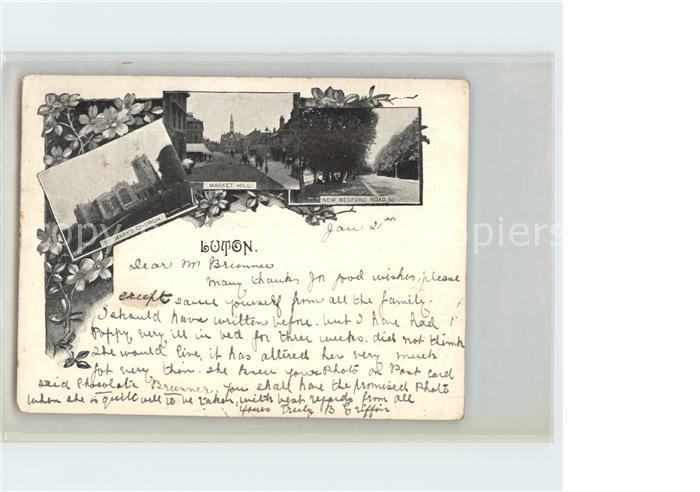 MARKET HILL.
NEW BEDFORD ROAD
ST MARY'S CHURCH.
Jan 21st
LUTON.
Dear Mr Brunner
Many thanks for good wishes, please
except same yourself from all the family.
I should have written before. but I have had
Poppy very ill in bed for three weeks. did not think
she would live, it has altered her very much
got very thin. she knew your Photo on Post card
said Chocolate Brunner, you shall have the promised Photo
when she is quite well to be taken, with best regards from all
Yours Truly B Griffin